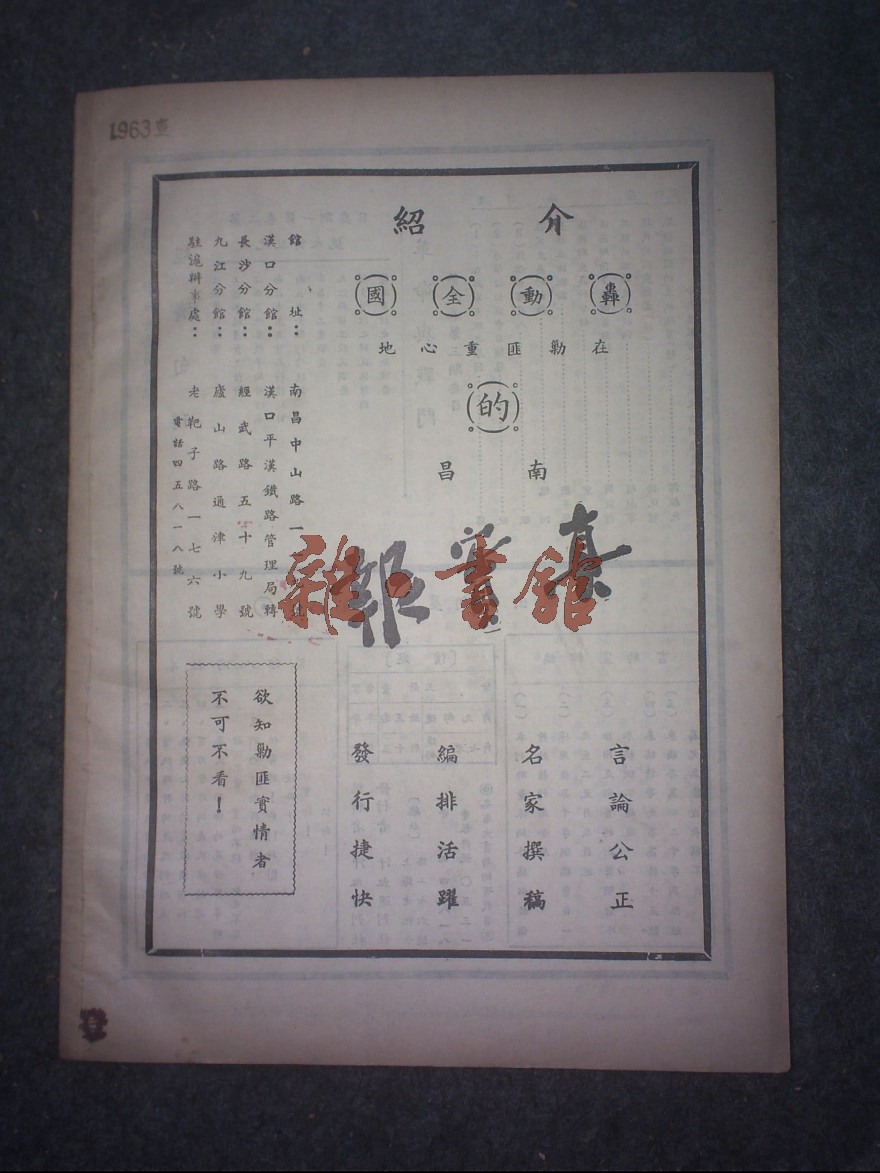 1963查
介紹
轟動全國
在勦匪重心地
的
南昌
真 報
雜·書館
言論公正
名家撰稿
編排活躍
發行捷快
館址：南昌中山路一 號
漢口分館：漢口平漢鐵路管理局轉
長沙分館：經武路五十九號
九江分館：廬山路通津小學
駐滬辦事處：老靶子路一七六號
電話四五八一八號
欲知勦匪實情者
不可不看！